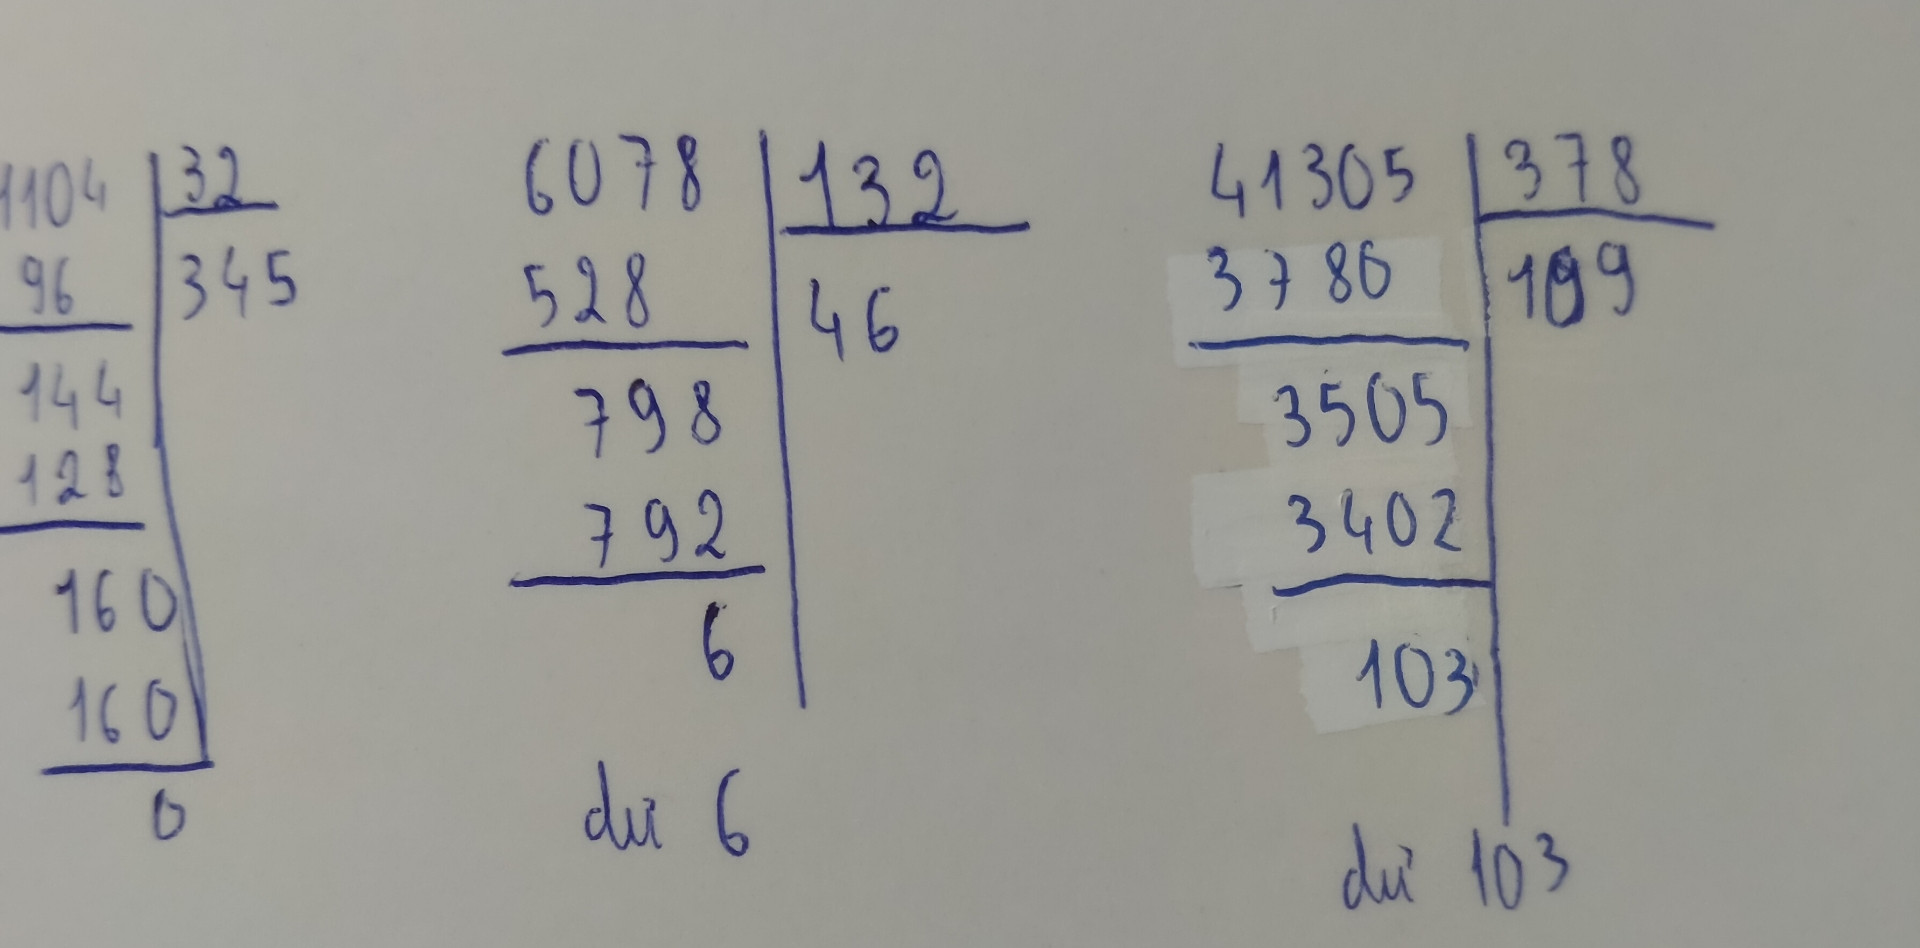 1104 32
96 345
144
128
160
160
0
6078 132
528 46
798
792
6
dư 6
41305 378
3780 109
3505
3402
103
dư 103